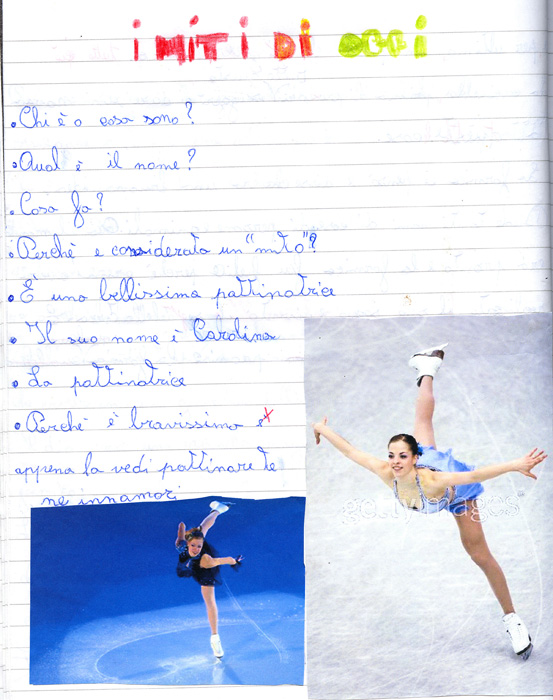 i MiTi Di OGGi
• Chi è o cosa sono?
• Qual è il nome?
• Cosa fa?
• Perchè e considerato un "mito"?
• È una bellissima pattinatrice
• Il suo nome è Carolina
• La pattinatrice
• Perchè è bravissima e
appena la vedi pattinare te
ne innamori
gettyimages